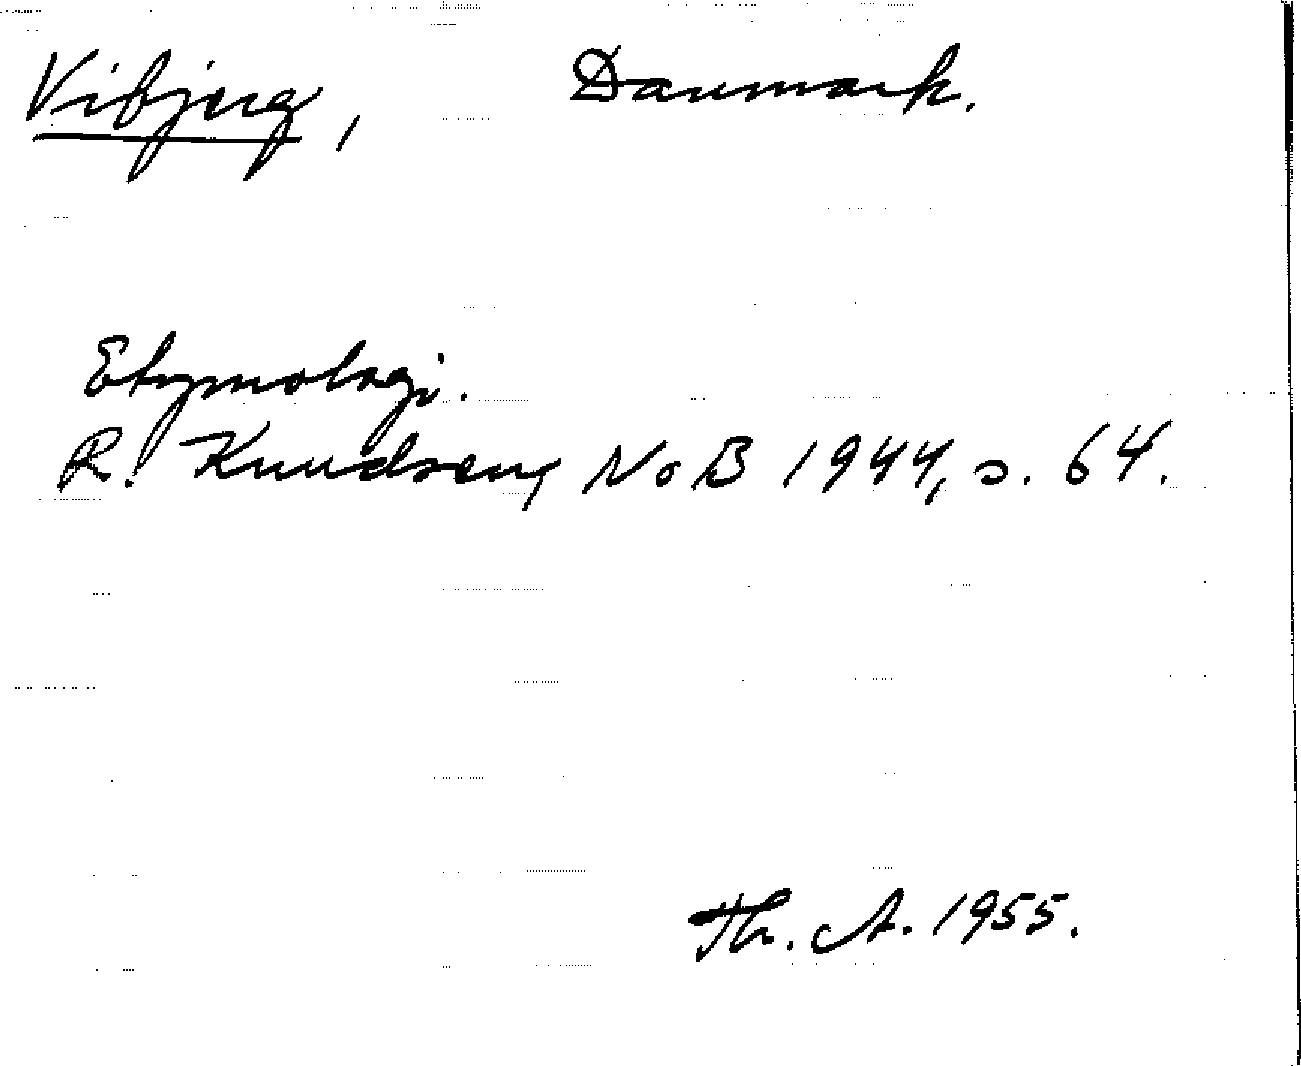 Vibjerg, Danmark.
Etymologi.
R. Knudsen, NoB 1944, s. 64.
Th. A. 1955.